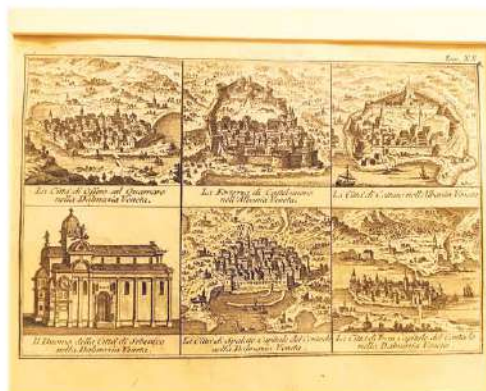 La Città di Ossero nel Quarnaro
nella Dalmazia Veneta.
La Fortezza di Castelnuovo
nell'Albania Veneta.
La Città di Cattaro nell'Albania Veneta
Il Duomo della Città di Sebenico
nella Dalmazia Veneta.
La Città di Spalato Capitale del Contado
nella Dalmazia Veneta
La Città di Trau Capitale del Contado
nella Dalmazia Veneta